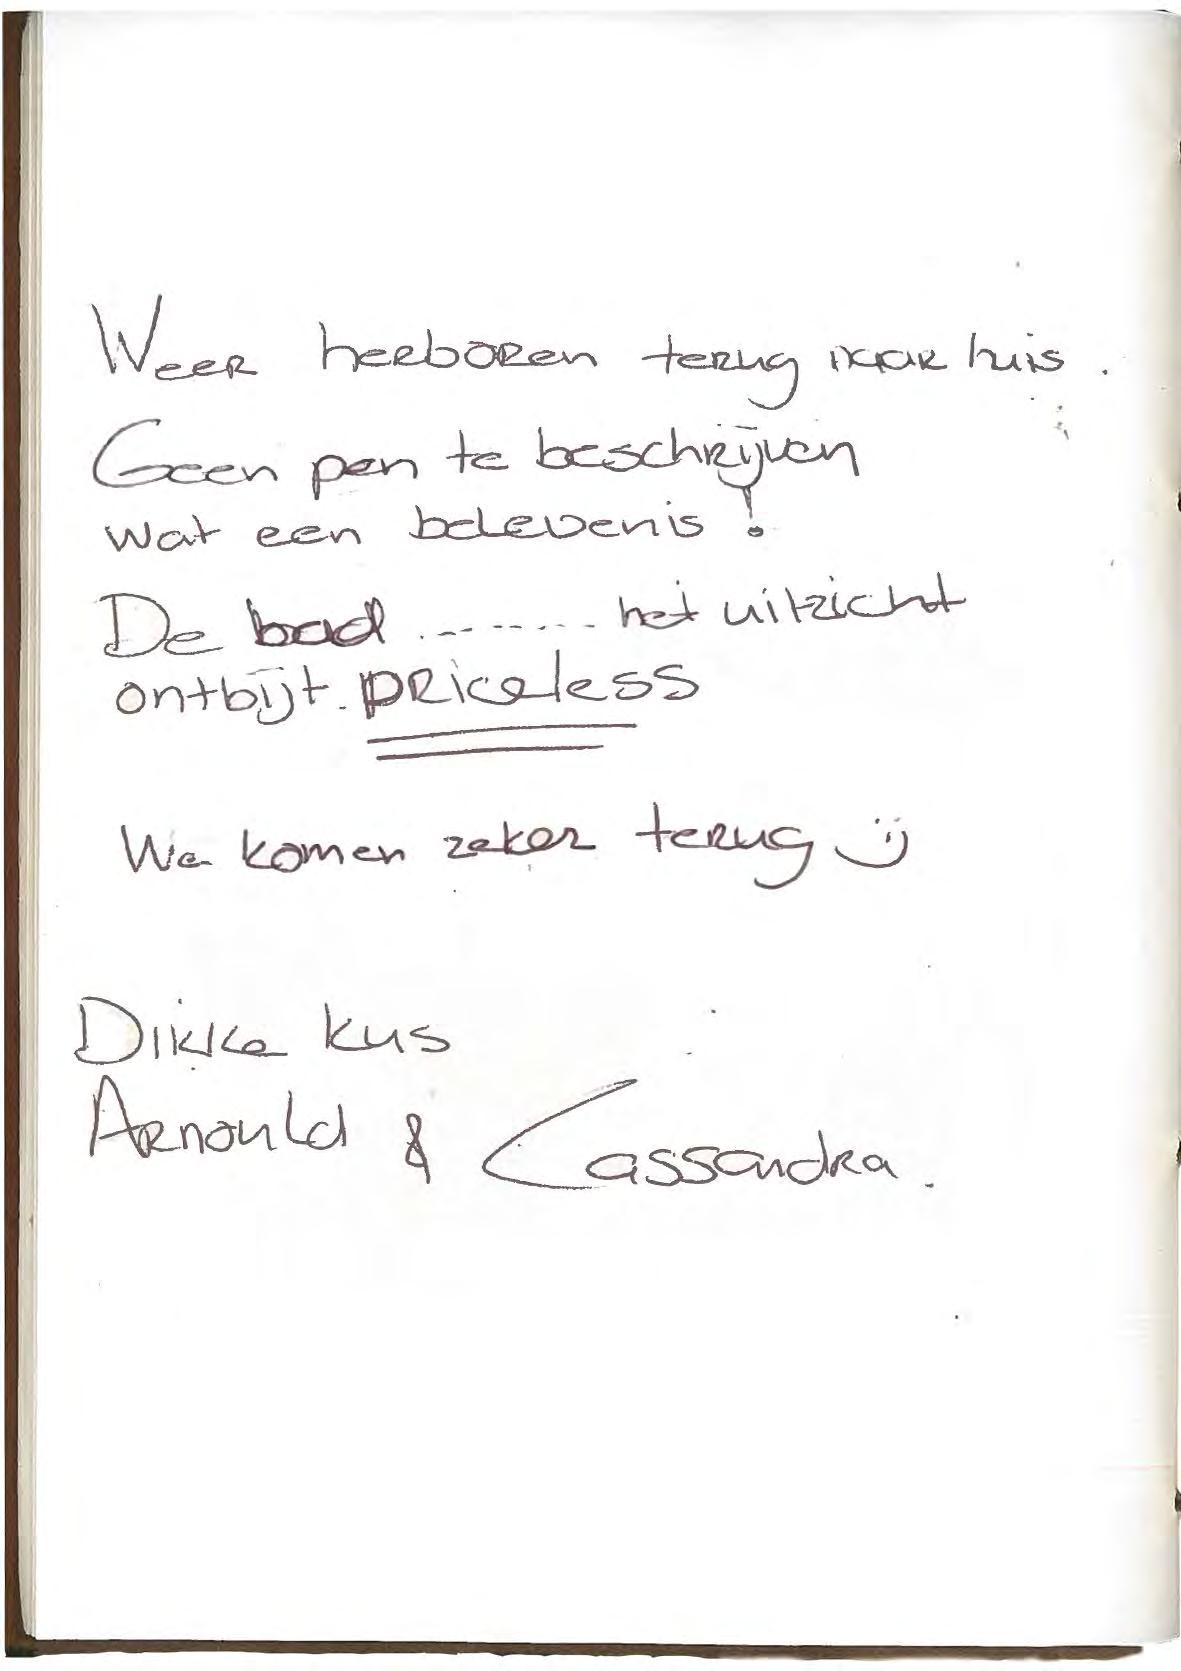 Weer herboren terug naar huis.
Geen pen te beschrijven
wat een belevenis!
De bad ......... het uitzicht
ontbijt. priceless
We komen zeker terug :)
Dikke kus
Arnould & Cassandra.